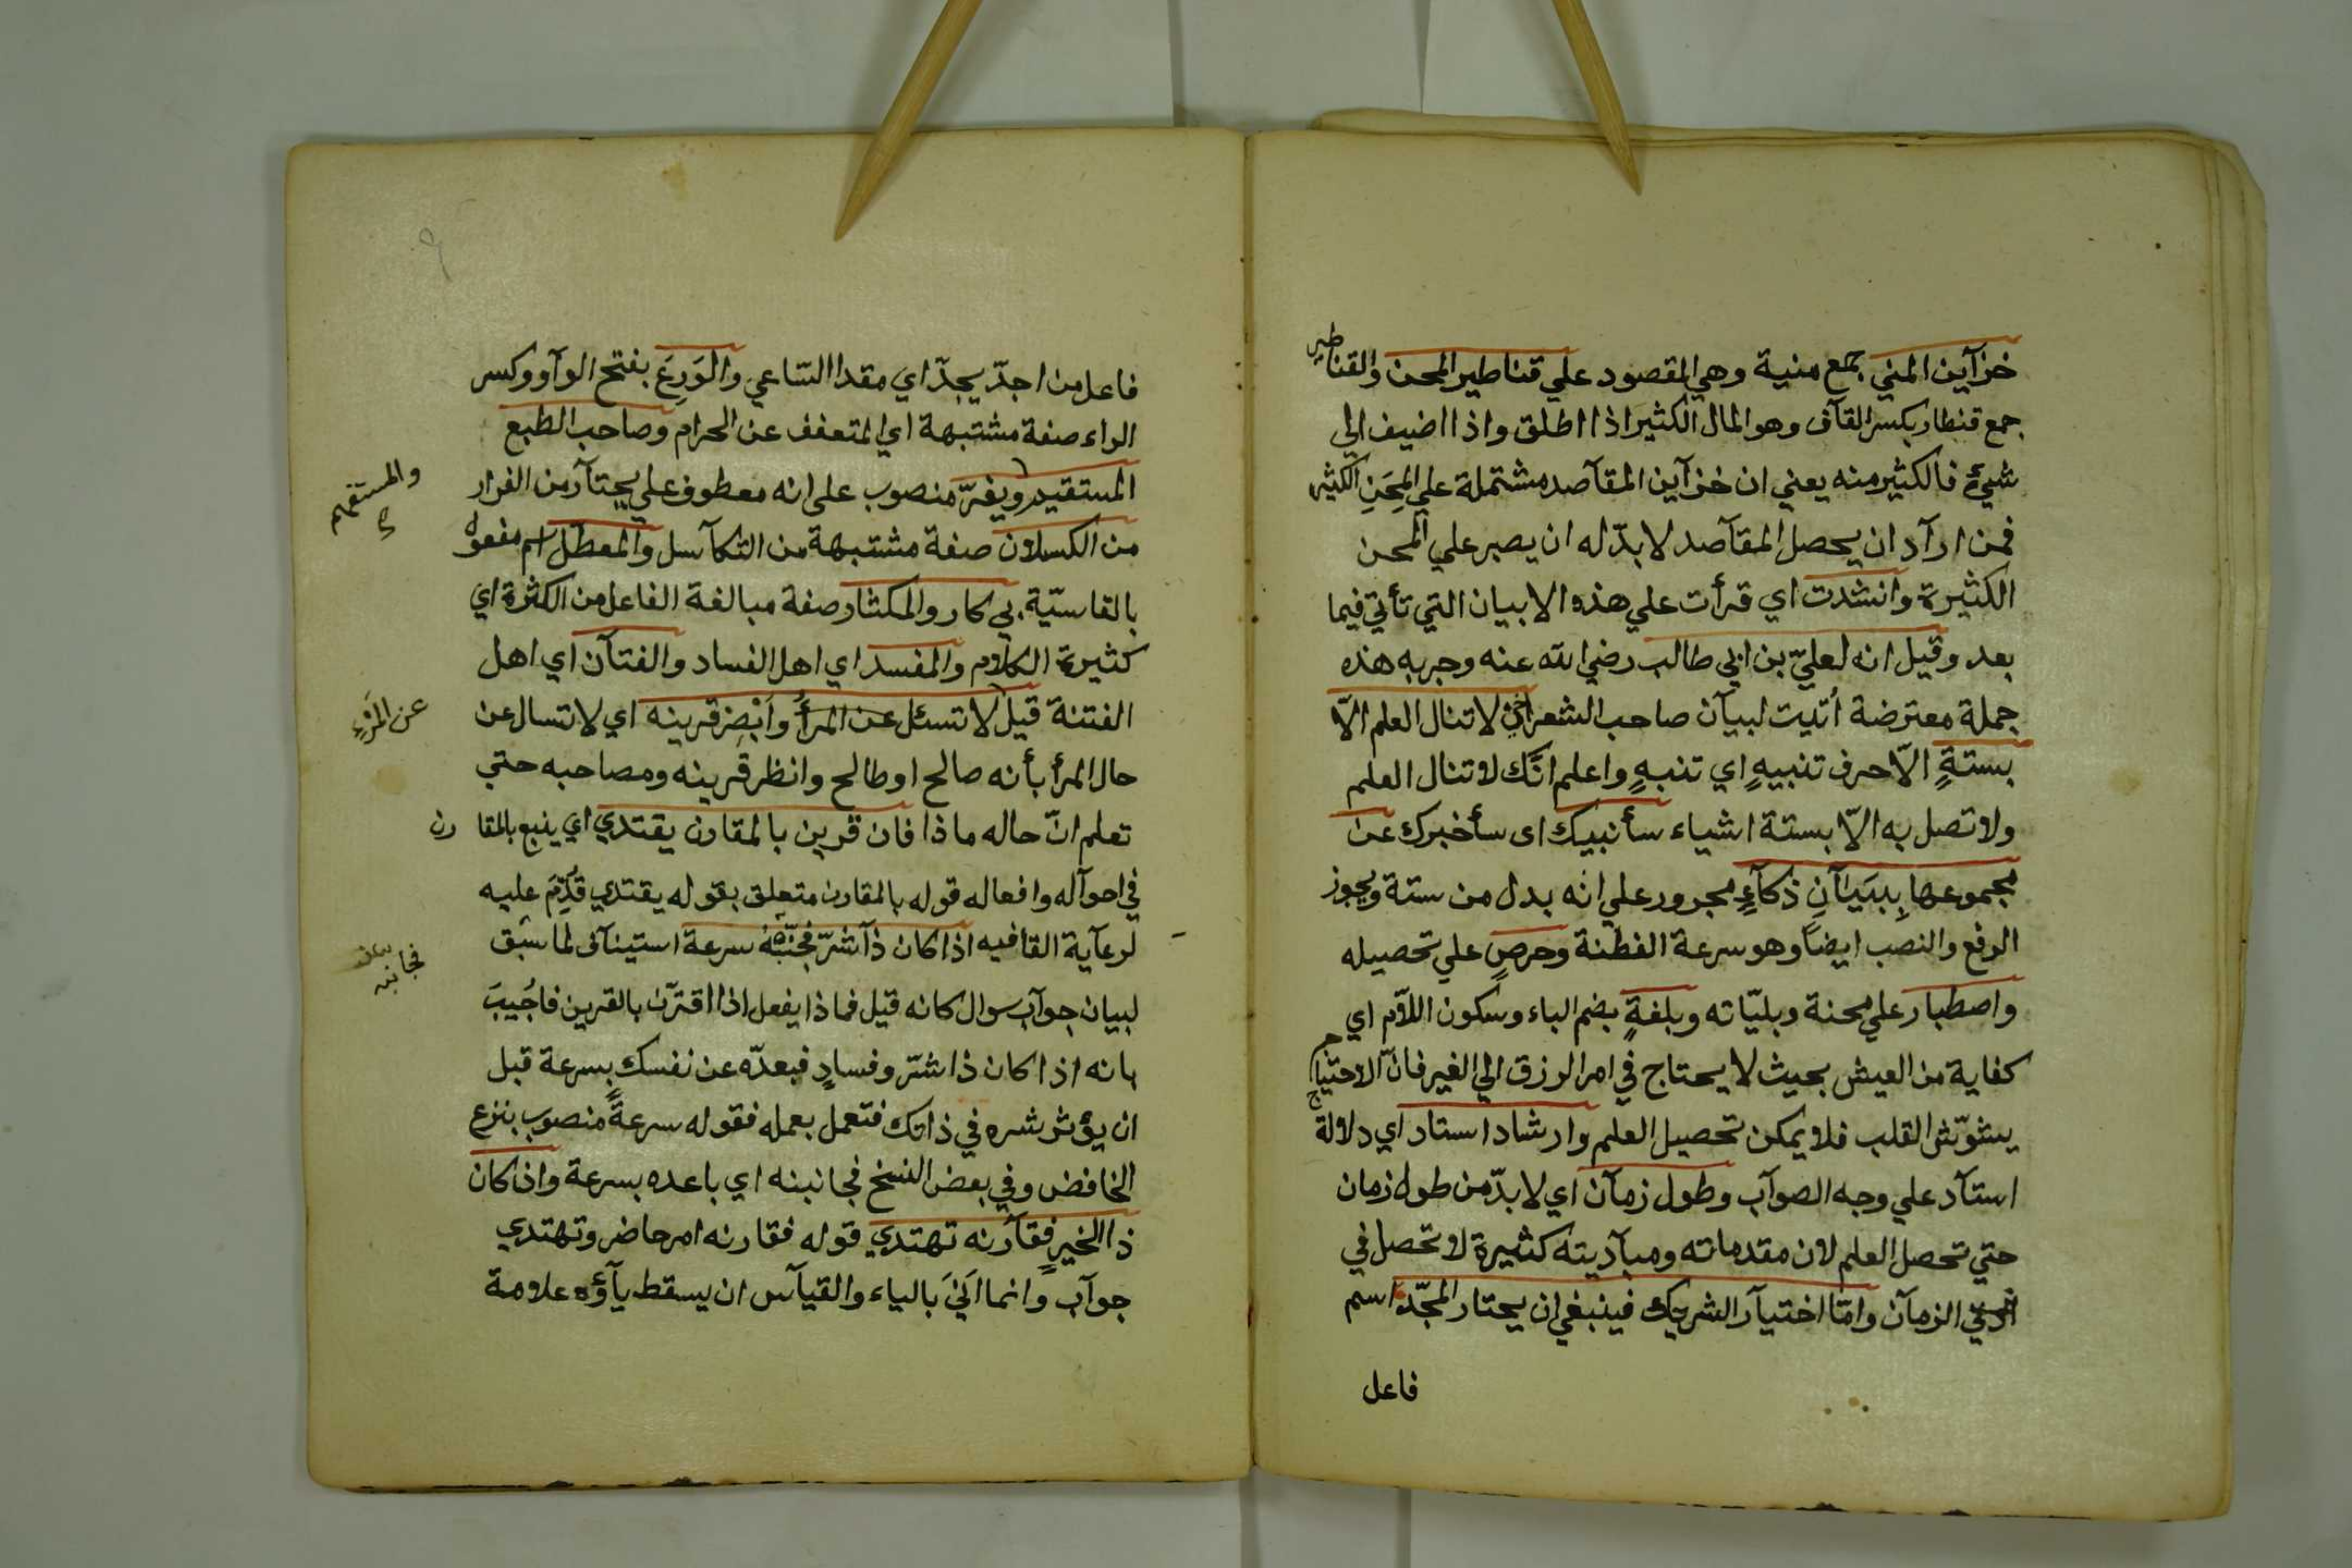 خزآين المني جمع منية وهي المقصود علي قناطير المحن والقناطير
جمع قنطار بكسر القآف وهو المال الكثير اذا اطلق واذا اضيف الي
شيءٍ فالكثير منه يعني ان خزآين المقآصد مشتملة علي المِحَنِ الكثير
فمن ارآد ان يحصل المقآصد لا بدّ له ان يصبر علي المحن
الكثيرة وانشدت اي قرأت علي هذه الابيان التي تأتي فيما
بعد وقيل انه لعليّ بن ابي طالب رضي الله عنه وجربه هذه
جملة معترضة اُتيت لبيآن صاحب الشعر اخي لا تنال العلم الاّ
بستةٍ الاّ حرف تنبيهٍ اي تنبهٍ واعلم انّك لا تنال العلم
ولا تصل به الاّ بستة اشياء سأنبيك اى سأخبرك عن
مجموعها بِبَيَآنِ ذكآءٍ مجرور علي انه بدل من ستة ويجوز
الرفع والنصب ايضاً وهو سرعة الفطنة وحرصٍ علي تحصيله
واصطبار علي محنة وبليّاته وبلغةٍ بضم الباء وسكون اللاّم اي
كفاية من العيش بحيث لا يحتاج في امر الرزق الي الغير فانّ الاحتياج
يشوّش القلب فلا يمكن تحصيل العلم وارشاد استاد اي دلالة
استآد علي وجه الصوآب وطول زمآن اي لا بدّ من طول زمان
حتي تحصل العلم لان مقدماته ومبآديته كثيرة لا تحصل في
الزمآن وامّا اختيآر الشريك فينبغي ان يحتار المجّد اسم
فاعل
فاعل من اجدّ يجدّ اي مقدا السّاعي والوَرِعَ بفتح الوآو وكسر
الراء صفة مشتبهة اي المتعفف عن الحرام وصاحب الطبع
المستقيم ويفرّ منصوب على انه معطوف علي يحتآر من الفرار
والمستقيم
من الكسلان صفة مشتبهة من التكآسل والمعطّل اسم مفعول
بالفاسيّة بي كار والمكثار صفة مبالغة الفاعل من الكثرة اي
كثيرة الكلام والمفسد اي اهل الفساد والفتآن اي اهل
الفتنة قيل لا تسئل عن المرأ وَاَبْصِرْ قرينه اي لا تسال عن
عن المَرْءِ
حال المرأ بأنه صالح او طالح وانظر قرينه ومصاحبه حتي
تعلم انّ حاله ماذا فان قرين بالمقارن يقتدي اي ينبع بالمقارن
في احوآله وافعاله قوله بالمقارن متعلق بقوله يقتدي قُدِّمَ عليه
لرعآية القافيه اذا كان ذآ شرّ فَجَنِّبْهُ سرعة استينآف لما سبق
فجانبه
لبيان جوآب سوال كانه قيل فماذا يفعل اذا اقترَن بالقرين فاُجيبَ
بانه اذا كان ذا شرّ وفسادٍ فبعدّه عن نفسك بسرعة قبل
ان يؤثر شره في ذاتك فتعمل بعمله فقوله سرعةً منصوب بنزع
الخافض وفي بعض النسخ فجانبنه اي باعده بسرعة وان كان
ذا الخير فقآرنه تهتدي قوله فقارنه امر حاضر وتهتدي
جوآب وانما اَتي بالياء والقيآس ان يسقط يآؤه علامة